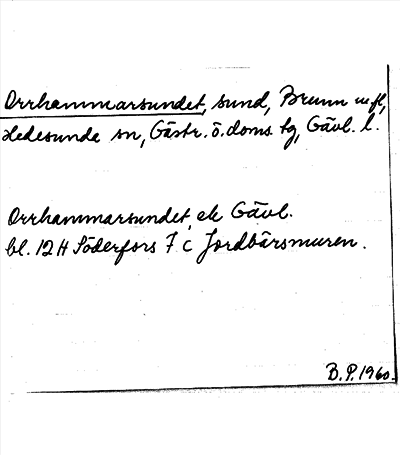 Orrhammarsundet, sund, Brunn m.fl.,
Hedesunda sn, Gästr. ö. doms. tg, Gävl. l.
Orrhammarsundet, ek Gävl.
bl. 12 H Söderfors 7 c Jordbärsmuren.
B.P. 1960.